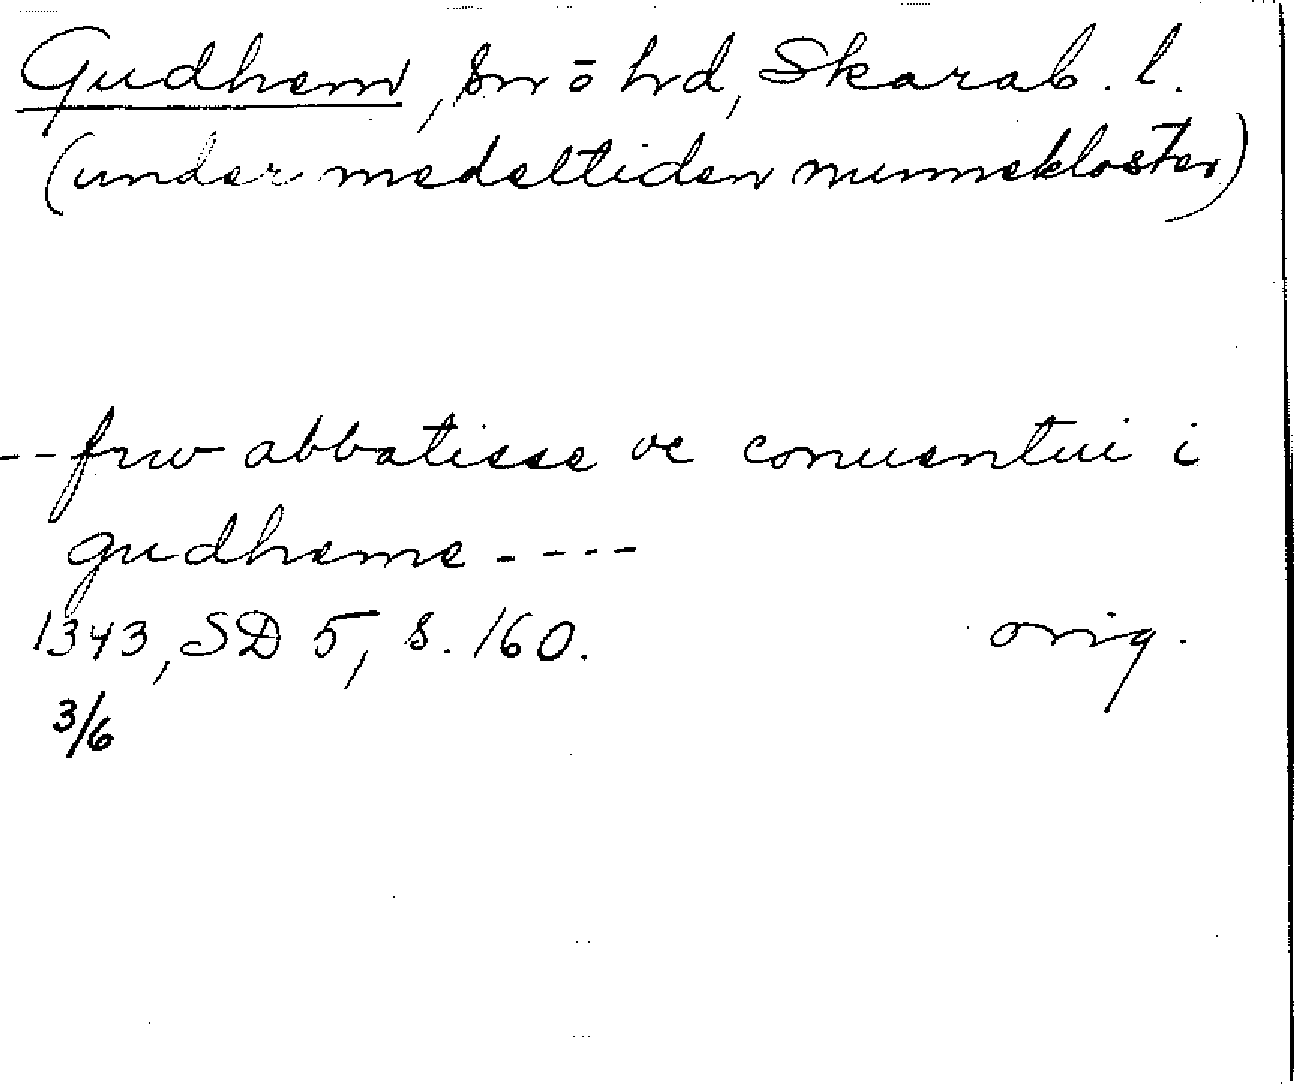 Gudhem, sn o hd, Skarab. l.
(under medeltiden nunnekloster)
-- frw abbatisse oc conuentui i
gudheme ----
1343, SD 5, s. 160. orig.
3/6